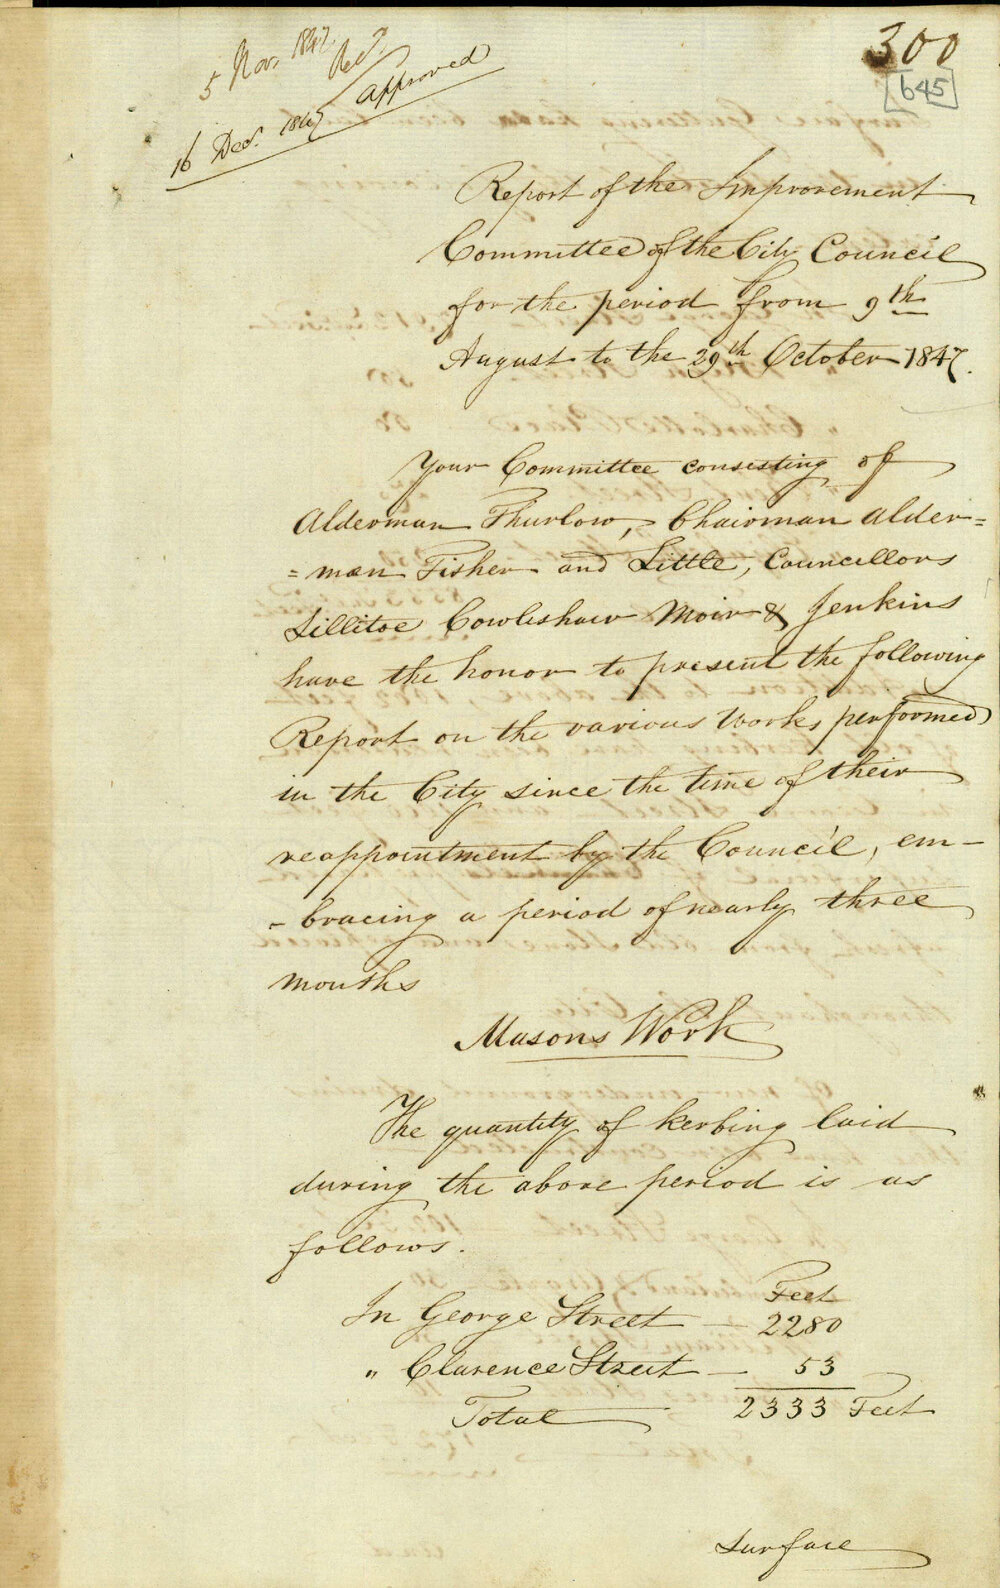 5 Nov. 1847. Recd.
16 Decr. 1847 approved
300
645
Report of the Improvement
Committee of the City Council
for the period from 9th
August to the 29th October 1847.
Your Committee consisting of
Alderman Thurlow, Chairman Alder=
=man Fisher and Little, Councillors
Lillitoe Cowlishaw Moir & Jenkins
have the honor to present the following
Report on the various works performed
in the City since the time of their
reappointment by the Council, em-
-bracing a period of nearly three
months
Masons Work
The quantity of kerbing laid
during the above period is as
follows.
Feet
In George Street - 2280
" Clarence Street - 53
Total 2333 Feet
Surface